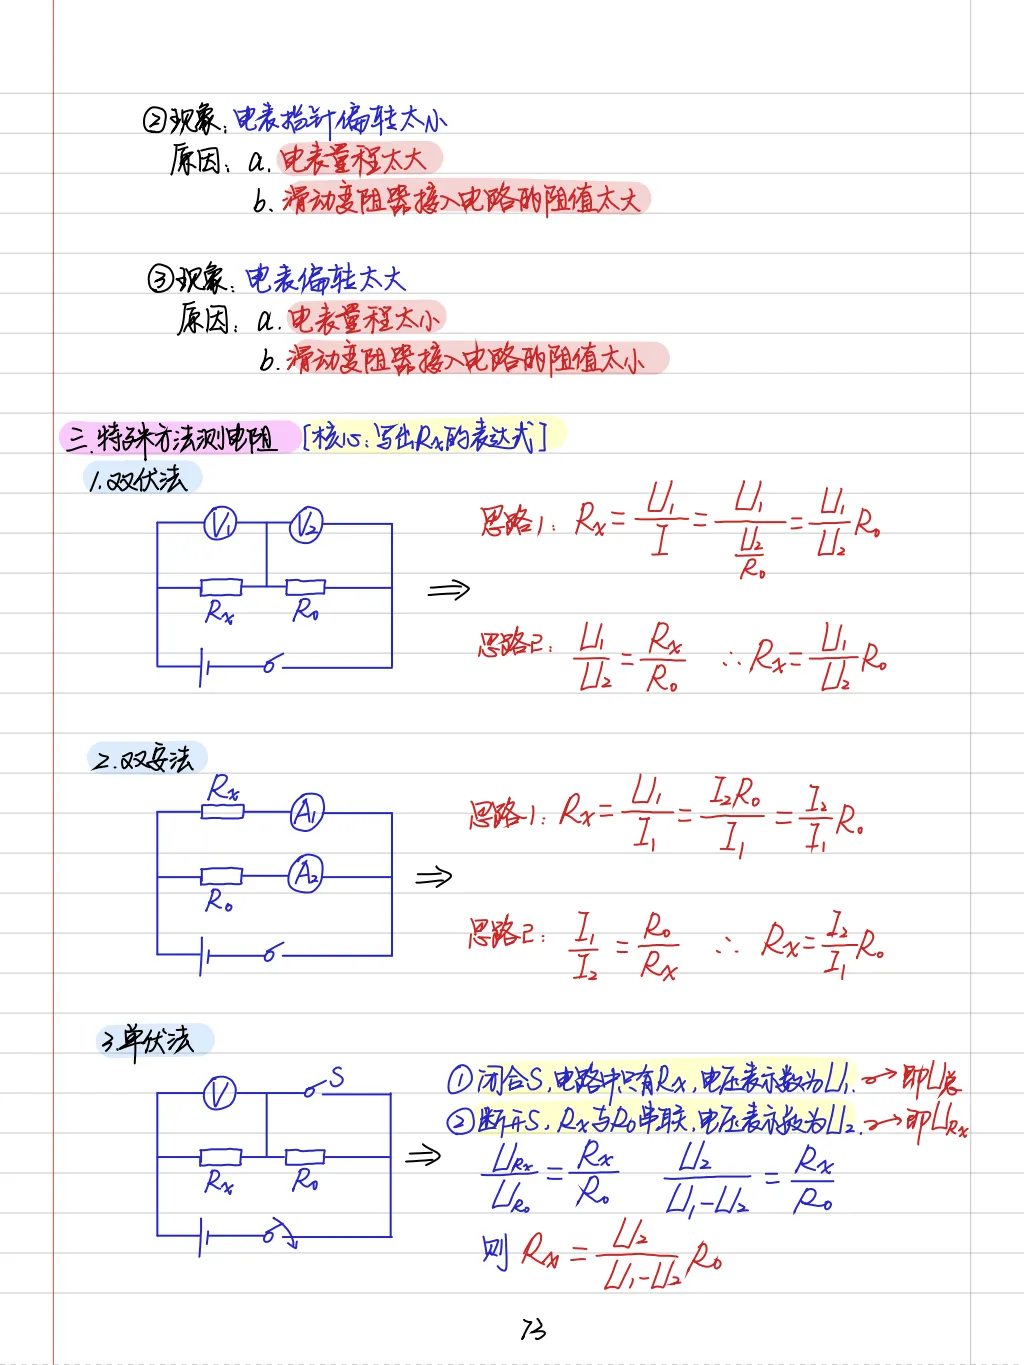 ②现象：电表指针偏转太小
原因：a.电表量程太大
b.滑动变阻器接入电路的阻值太大
③现象：电表偏转太大
原因：a.电表量程太小
b.滑动变阻器接入电路的阻值太小
三.特殊方法测电阻 [核心：写出Rx的表达式]
1.双伏法
V₁ V₂
Rx R₀
思路1：Rx=U₁/I=U₁/(U₂/R₀)=U₁/U₂ R₀
思路2：U₁/U₂=Rx/R₀ ∴Rx=U₁/U₂ R₀
2.双安法
Rx A₁
R₀ A₂
思路1：Rx=U₁/I₁=I₂R₀/I₁=I₂/I₁ R₀
思路2：I₁/I₂=R₀/Rx ∴Rx=I₂/I₁ R₀
3.单伏法
V S
Rx R₀
①闭合S，电路中只有Rx，电压表示数为U₁.→即U总
②断开S，Rx与R₀串联，电压表示数为U₂.→即URx
URx/UR₀=Rx/R₀ U₂/(U₁-U₂)=Rx/R₀
则 Rx=U₂/(U₁-U₂) R₀
73